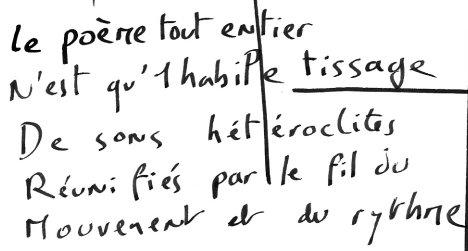 le poème tout entier
N'est qu'1 habile tissage
De sons hétéroclites
Réunifiés par le fil du
Mouvement et du rythme